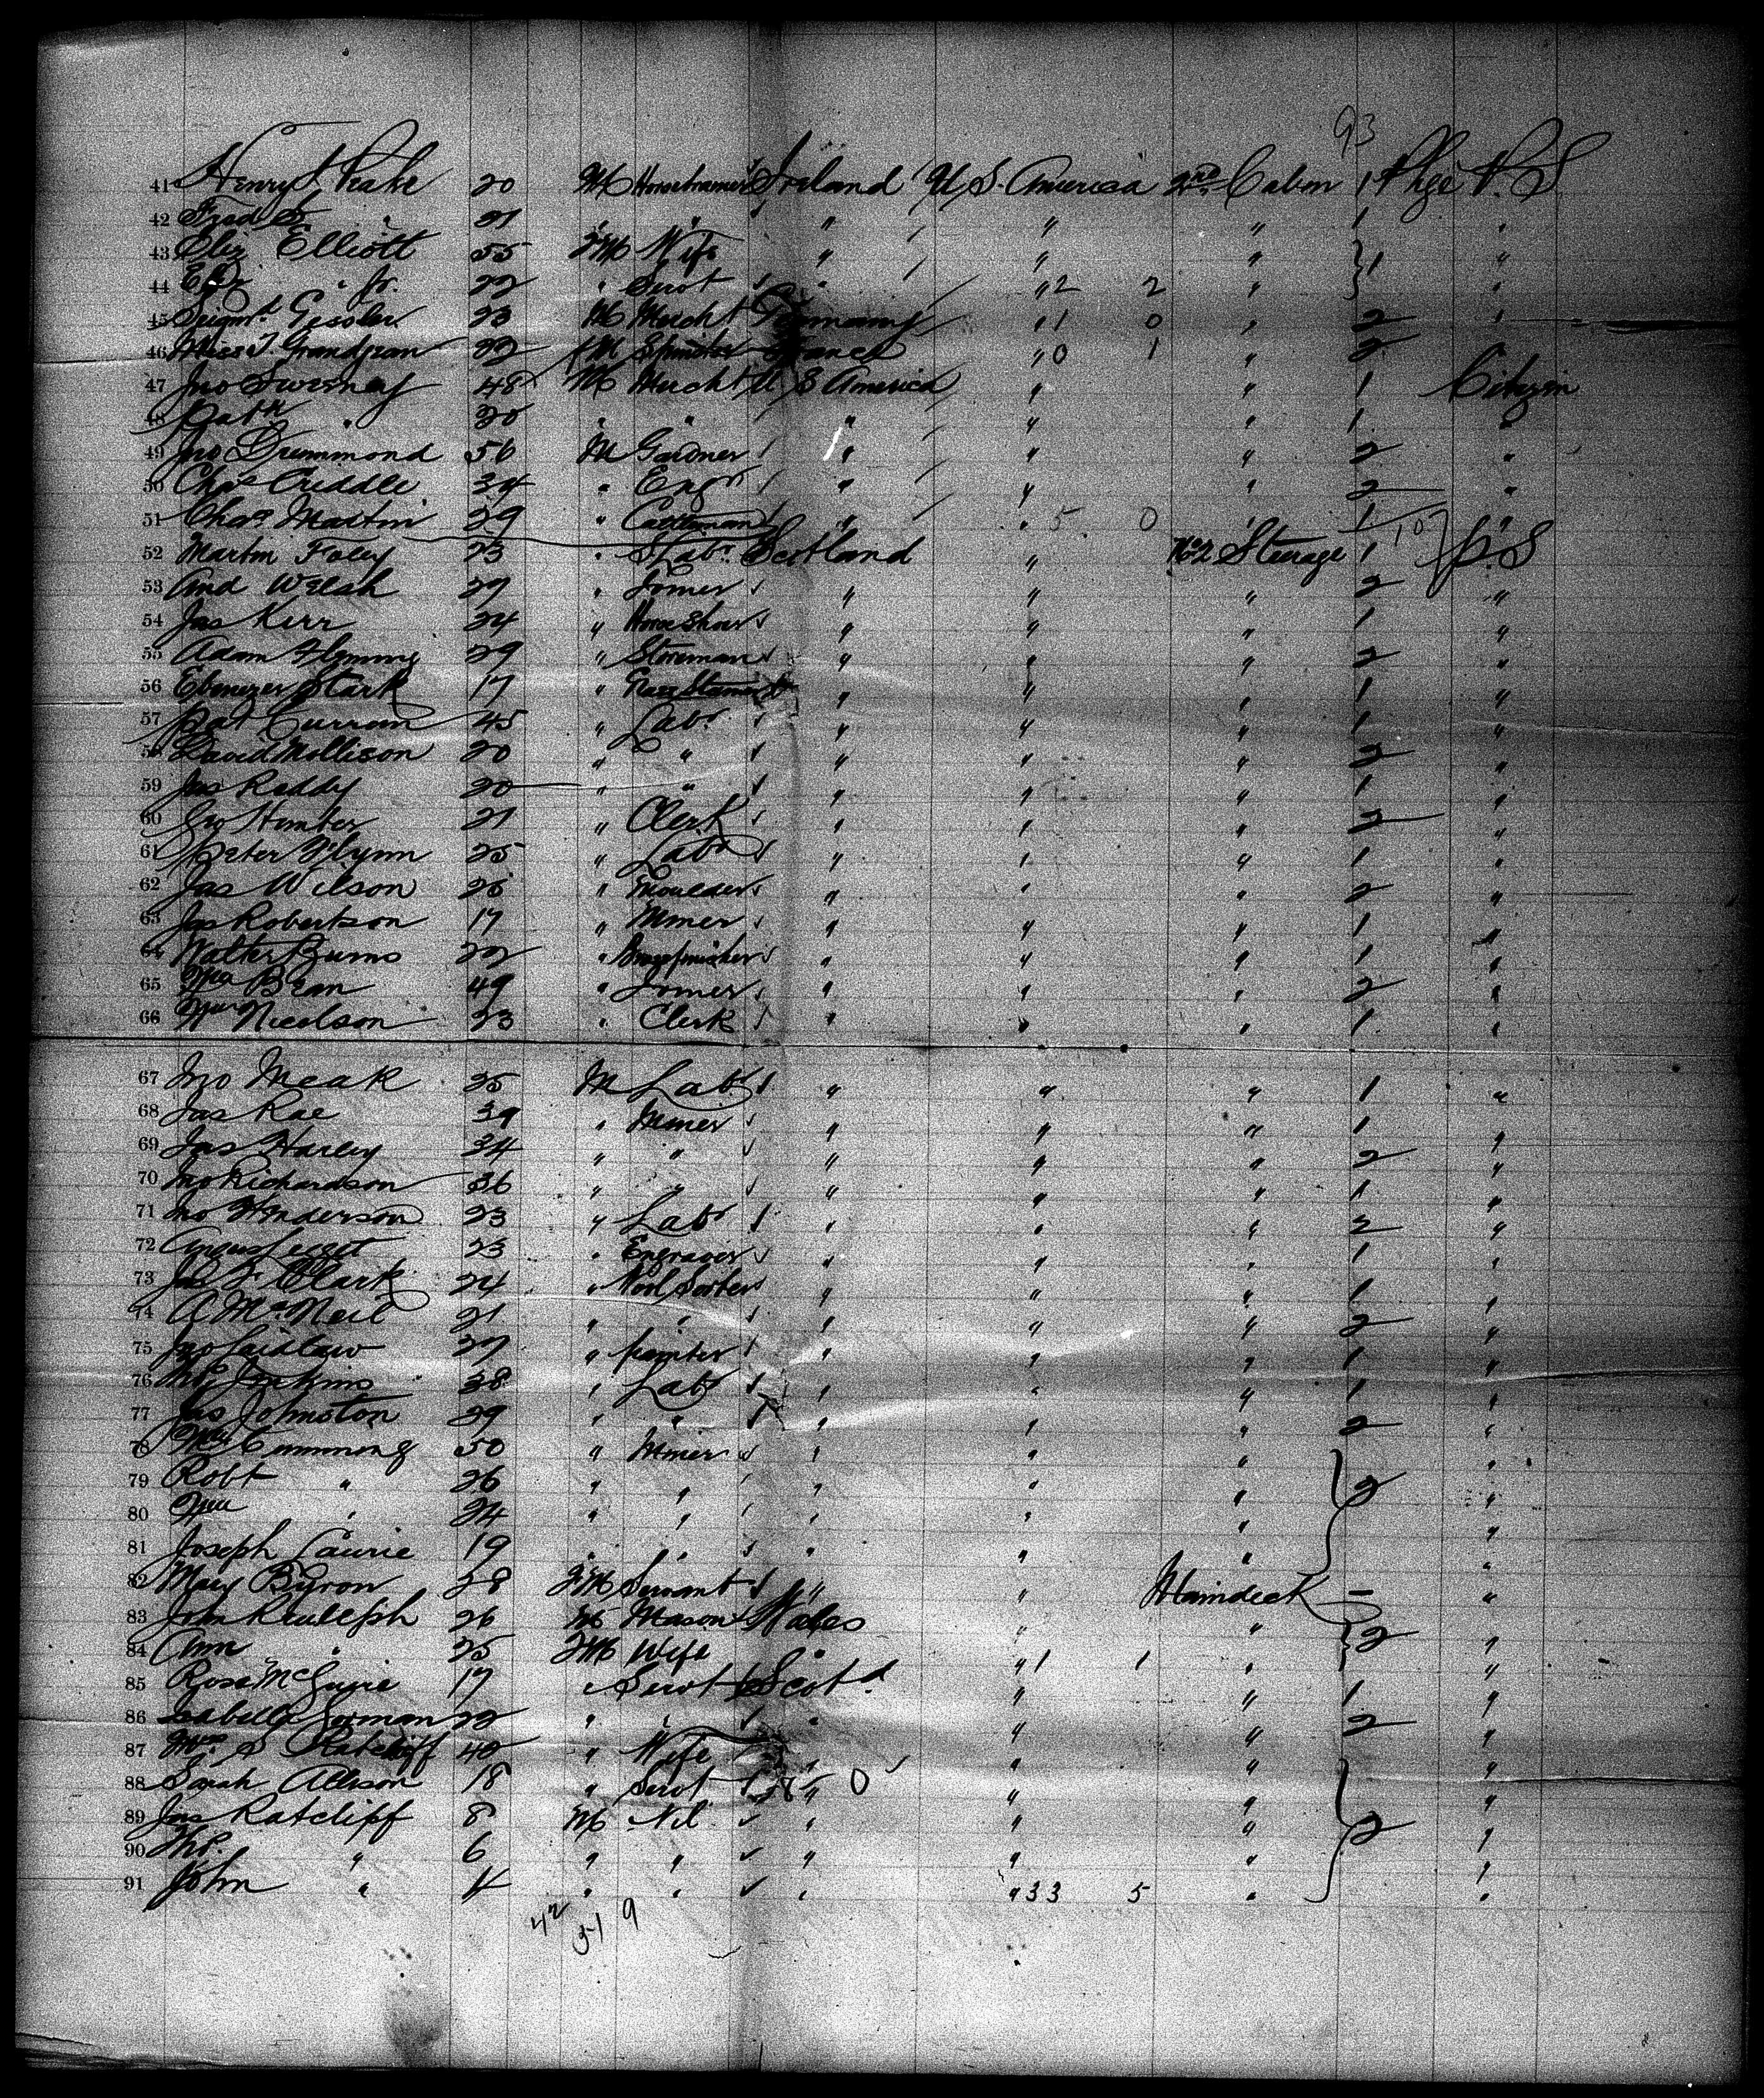 93
41 Henry Peake 20 M Horsetrainer Ireland U.S. America 2nd Cabin 1 Pkge P.S
42 Fred " 21 " " " " " 1 "
43 Eliz Elliott 55 FM Wife " " " 1 "
44 " Jr. 22 " Servt " " 2 2 " "
45 Gessler 23 M Mercht Germany " 1 0 " 2 "
46 Miss J. Grandjean 22 FM Spinster France " 0 1 " 2 "
47 Jno Sweeney 48 M Mercht U S America " " 1 Citizen
48 Patk " 20 " " " " " 1 "
49 Jno Drummond 56 M Gardner " " " 2 "
50 Chas Criddle 34 " Engr " " " 2 "
51 Chas Martin 29 " Cattleman " " 5 0 " 1 10 "
52 Martin Foley 23 " Labr Scotland " No2 Steerage 1 P.S
53 And Welsh 27 " Joiner " " " 2 "
54 Jas Kerr 24 " Horse Shoer " " " 1 "
55 Adam Fleming 29 " Storeman " " " 2 "
56 Ebenezer Stark 17 " Glass Stainer " " " 1 "
57 Pat Curran 45 " Labr " " " 1 "
58 David Mollison 20 " " " " " 2 "
59 Jas Reddy 20 " " " " " 1 "
60 Geo Hunter 21 " Clerk " " " 2 "
61 Peter Flynn 25 " Labr " " " 1 "
62 Jas Wilson 26 " Moulder " " " 2 "
63 Jas Robertson 17 " Miner " " " 1 "
64 Walter Burns 22 " Brassfinisher " " " 1 "
65 Wm Bean 49 " Joiner " " " 2 "
66 Wm Nicolson 23 " Clerk " " " 1 "
67 Jno Meak 35 M Labr " " " 1 "
68 Jas Rae 39 " Miner " " " 1 "
69 Jas Harley 34 " " " " " 2 "
70 Jno Richardson 36 " " " " " 1 "
71 Jno Henderson 23 " Labr " " " 2 "
72 Angus Legget 23 " Engraver " " " 1 "
73 Jas F. Clark 24 " Wool Sorter " " " 1 "
74 A McNeil 21 " " " " " 2 "
75 Jno Laidlaw 27 " painter " " " 1 "
76 Thos Jenkins 38 " Labr " " " 1 "
77 Jas Johnston 29 " " " " " 2 "
78 Wm Cumming 50 " Miner " " " "
79 Robt " 26 " " " " " 2 "
80 Wm " 24 " " " " " "
81 Joseph Laurie 19 " " " " " "
82 Mary Byron 28 FM Servant " " Maindeck - "
83 John Reuleph 26 M Mason Wales " " 2 "
84 Ann " 25 FM Wife " 1 1 " "
85 Rose McGuire 17 " Servt Scotd " " 1 "
86 Isabella Gorman 22 " " " " " 2 "
87 Mrs S Ratcliff 40 " Wife " " " "
88 Sarah Allison 18 " Servt " 0 " " "
89 Jas Ratcliff 8 M Nil " " " 2 "
90 Thos. " 6 " " " " " "
91 John " 4 " " " " 33 5 " "
42 51 9